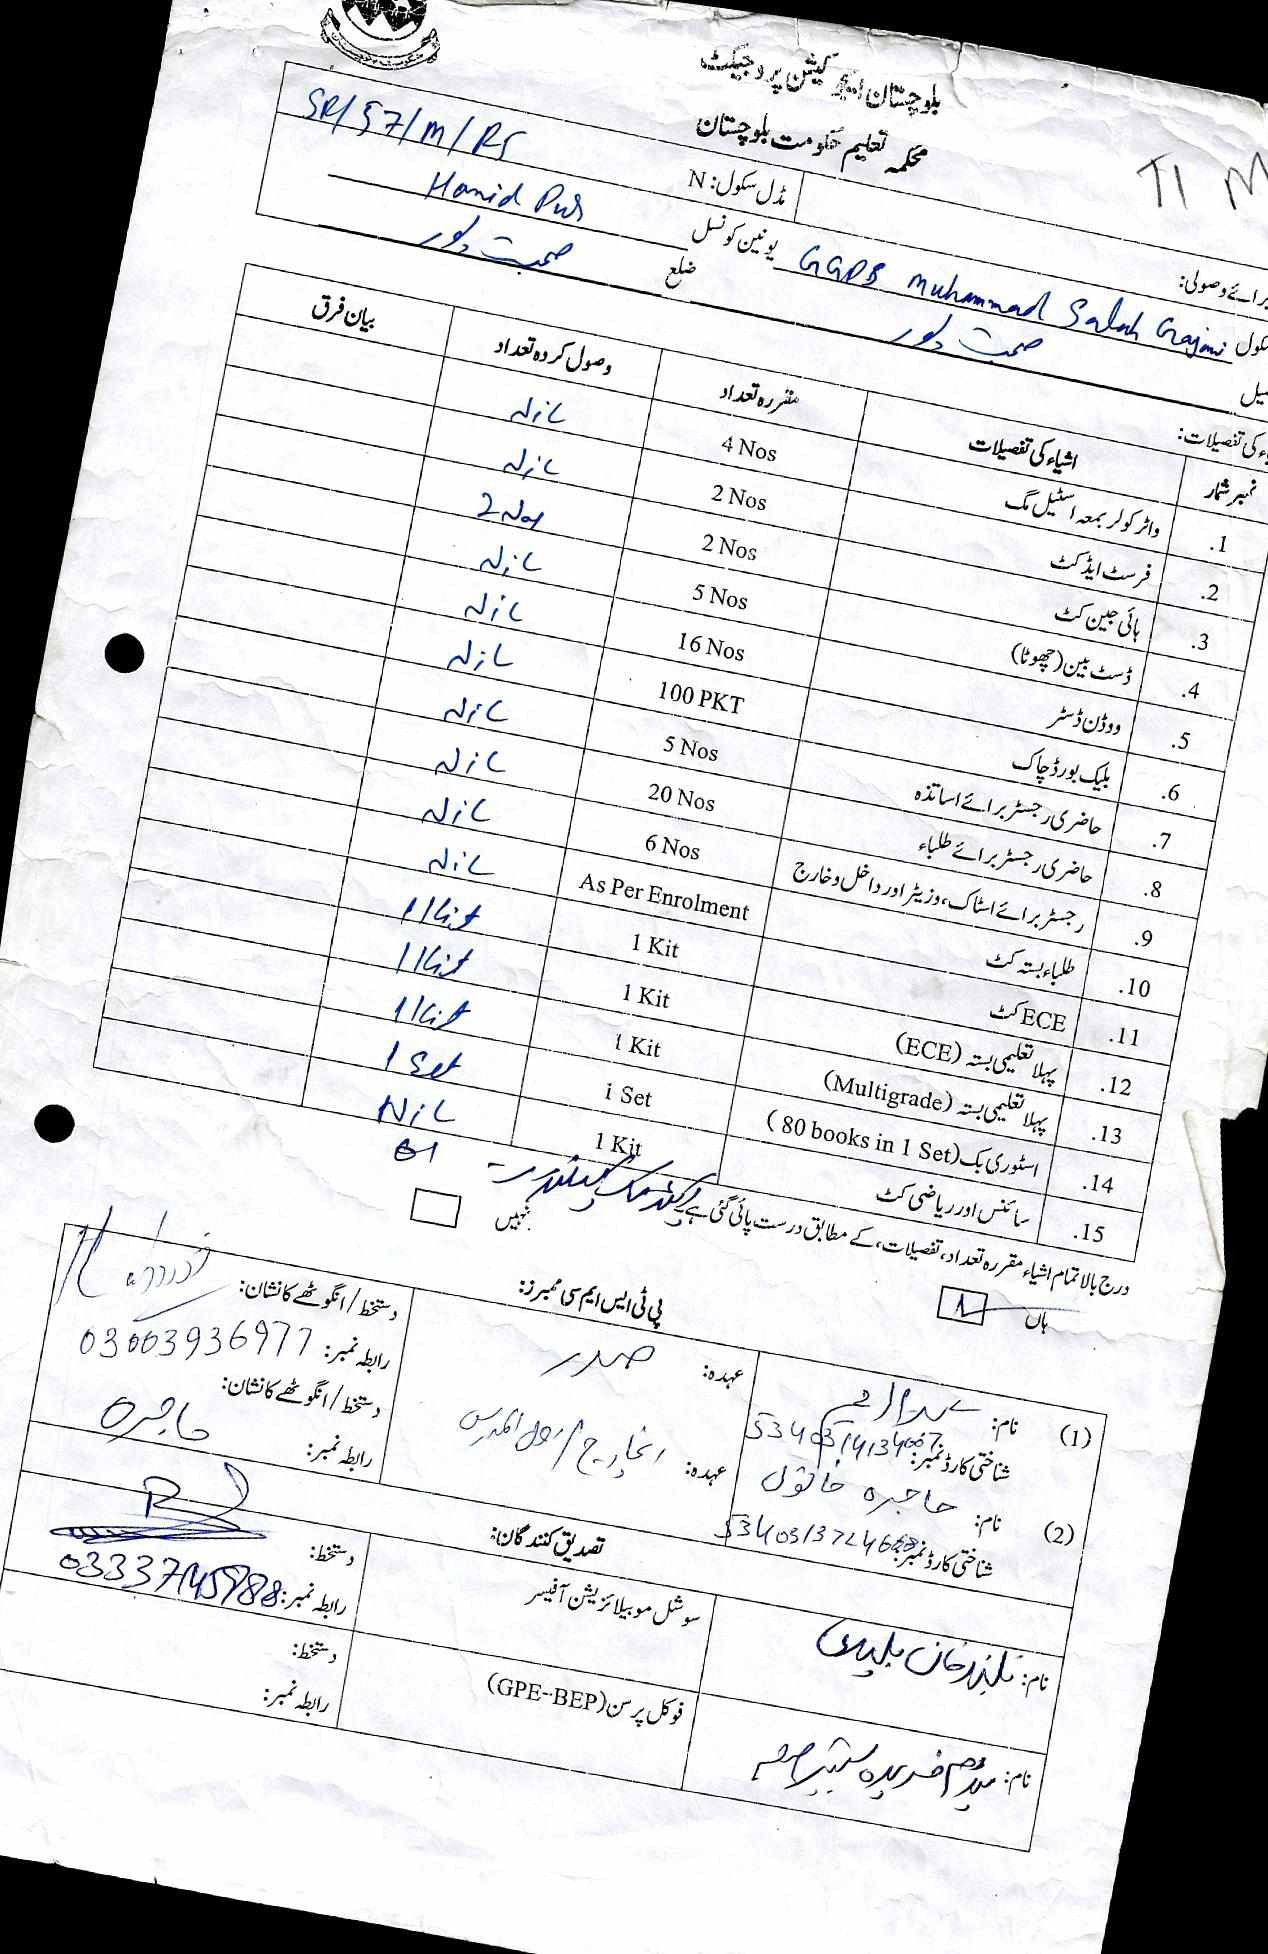 بلوچستان ایجوکیشن پروجیکٹ
محکمہ تعلیم حکومت بلوچستان
TI M
SR/57/M/RS
مڈل سکول: N
برائے وصولی:
سکول GGPS Muhammad Salah Gajani یونین کونسل Hamid Pur
صحبت پور ضلع صحبت پور
اء کی تفصیلات:
نمبر شمار اشیاء کی تفصیلات مقررہ تعداد وصول کردہ تعداد بیان فرق
1. واٹر کولر بمعہ اسٹیل مگ 4 Nos Nil
2. فرسٹ ایڈ کٹ 2 Nos Nil
3. ہائی جین کٹ 2 Nos 2 Nos
4. ڈسٹ بین (چھوٹا) 5 Nos Nil
5. ووڈن ڈسٹر 16 Nos Nil
6. بلیک بورڈ چاک 100 PKT Nil
7. حاضری رجسٹر برائے اساتذہ 5 Nos Nil
8. حاضری رجسٹر برائے طلباء 20 Nos Nil
9. رجسٹر برائے اسٹاک، وزیٹر اور داخل و خارج 6 Nos Nil
10. طلباء بستہ کٹ As Per Enrolment Nil
11. ECE کٹ 1 Kit 1 Kit
12. پہلا تعلیمی بستہ (ECE) 1 Kit 1 Kit
13. پہلا تعلیمی بستہ (Multigrade) 1 Kit 1 Kit
14. اسٹوری بک (80 books in 1 Set) 1 Set 1 Set
15. سائنس اور ریاضی کٹ 1 Kit NIL
01
درج بالا تمام اشیاء مقررہ تعداد، تفصیلات، کے مطابق درست پائی گئی ہے
ہاں نہیں
پی ٹی ایس ایم سی ممبرز:
(1) نام: عہدہ: صدر دستخط / انگوٹھے کا نشان:
شناختی کارڈ نمبر: رابطہ نمبر: 03003936977
(2) نام: حاجرہ خاتون عہدہ: دستخط / انگوٹھے کا نشان: حاجرہ
شناختی کارڈ نمبر: رابطہ نمبر:
تصدیق کنندگان:
نام: سوشل موبیلائزیشن آفیسر دستخط:
رابطہ نمبر:
نام: میڈم فریدہ فوکل پرسن (GPE-BEP) دستخط:
رابطہ نمبر: